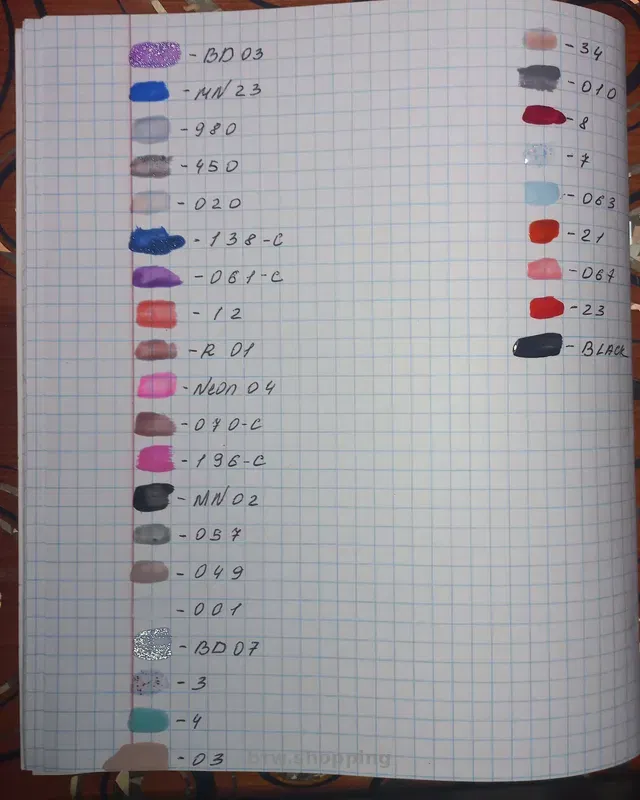 - BD 03
- MN 23
- 980
- 450
- 020
- 138-C
- 061-C
- 12
- R 01
- Neon 04
- 070-C
- 196-C
- MN 02
- 057
- 049
- 001
- BD 07
- 3
- 4
- 03
- 34
- 010
- 8
- 7
- 063
- 21
- 067
- 23
- BLACK
brw.shopping